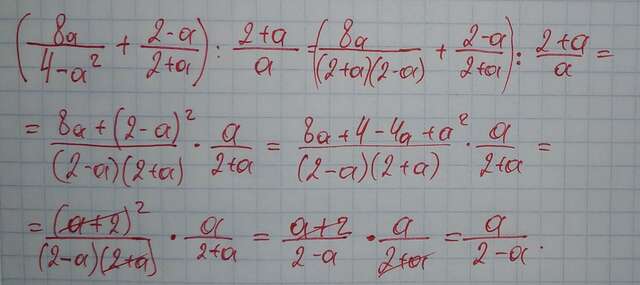 (8a/(4-a²) + (2-a)/(2+a)) : (2+a)/a = (8a/((2+a)(2-a)) + (2-a)/(2+a)) : (2+a)/a =
= (8a+(2-a)²)/((2-a)(2+a)) · a/(2+a) = (8a+4-4a+a²)/((2-a)(2+a)) · a/(2+a) =
= (a+2)²/((2-a)(2+a)) · a/(2+a) = (a+2)/(2-a) · a/(2+a) = a/(2-a).